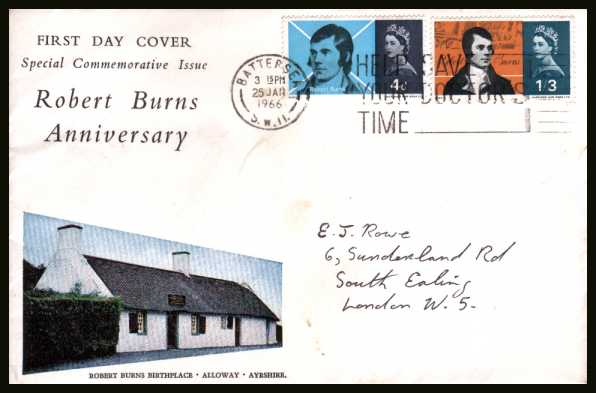 FIRST DAY COVER
Special Commemorative Issue
Robert Burns
Anniversary
BATTERSEA
3 15PM
25 JAN
1966
S.W.11.
HELP SAVE
YOUR DOCTOR'S
TIME
Robert Burns
4d
Burns
1'3
E. J. Rowe
6, Sunderland Rd
South Ealing
London W. 5.
ROBERT BURNS BIRTHPLACE · ALLOWAY · AYRSHIRE.